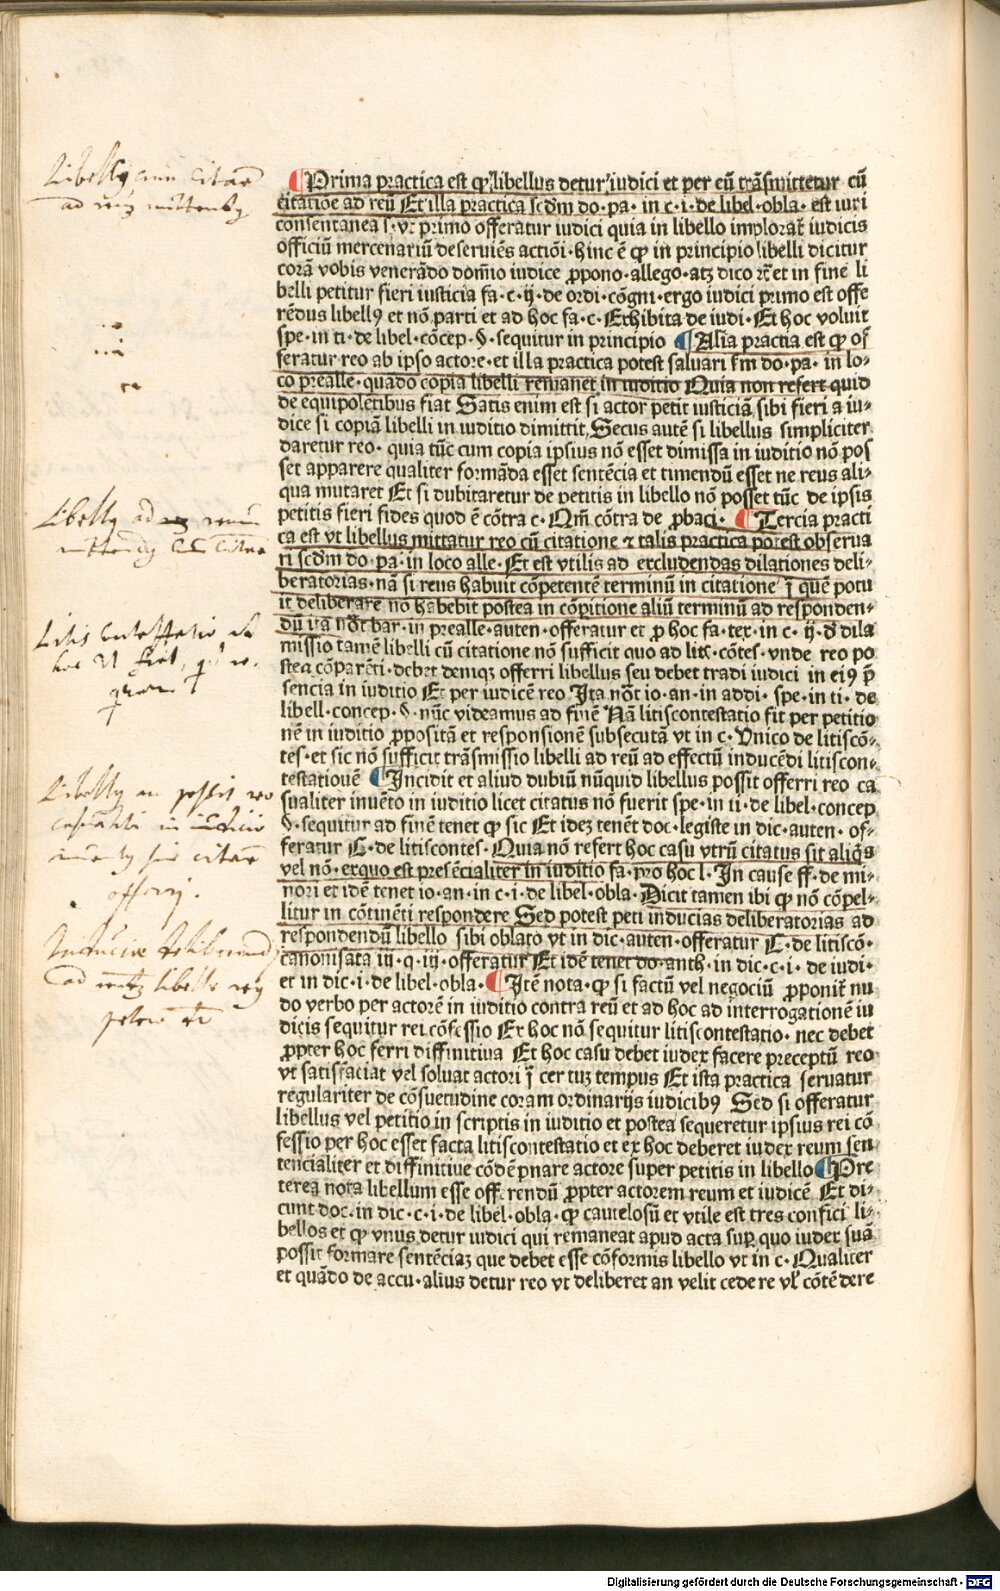 ¶Prima practica est ꝙ libellus detur iudici et per eū trãsmittetur cū
citatiõe ad reū Et illa practica scd̃m do·pa·in c·i·de libel·obla·est iuri
consentanea s·vt primo offeratur iudici quia in libello implorat̃ iudicis
officiũ mercenariũ deseruiẽs actiõi·hinc ẽ ꝙ in principio libelli dicitur
corã vobis venerãdo dom̃io iudice ꝓpono·allego·atꝫ dico rc̃ et in fine li
belli petitur fieri iusticia fa·c·ij·de ordi·cõgni·ergo iudici primo est offe
rẽdus libellꝰ et nõ parti et ad hoc fa·c·Exhibita de iudi·Et hoc voluit
spe·in ti·de libel·cõcep·§·sequitur in principio ¶Alia practia est ꝙ of
feratur reo ab ipso actore·et illa practica potest saluari fm do·pa·in lo-
co prealle·quãdo copia libelli remanet in iuditio Quia non refert quid
de equipolẽtibus fiat Satis enim est si actor petit iusticiã sibi fieri a iu-
dice si copiã libelli in iuditio dimittit, Secus autẽ si libellus simpliciter
daretur reo·quia tũc cum copia ipsius nõ esset dimissa in iuditio nõ pos
set apparere qualiter formãda esset sentẽcia et timendũ esset ne reus ali-
qua mutaret Et si dubitaretur de petitis in libello nõ posset tũc de ipsis
petitis fieri fides quod ē cõtra c·Qm̃ cõtra de ꝓbaci· ¶Tercia practi
ca est vt libellus mittatur reo cũ citatione ⁊ talis practica potest obserua
ri scd̃m do·pa·in loco alle·Et est vtilis ad excludendas dilationes deli-
beratorias·nã si reus habuit cõpetentẽ terminũ in citatione ĩ quẽ potu
it deliberare nõ habebit postea in cõpitione aliũ terminũ ad responden-
dũ ita nõt bar·in prealle·auten·offeratur et ꝓ hoc fa·tex·in c·ij·d̃ dila
missio tamẽ libelli cũ citatione nõ sufficit quo ad litꝭ·cõtes·vnde reo po
stea cõparẽti·debet deniqꝫ offerri libellus seu debet tradi iudici in eiꝰ p̃
sencia in iuditio Et per iudicẽ reo Ita nõt io·an·in addi·spe·in ti·de
libell·concep·§·nũc videamus ad finẽ Nã litiscontestatio fit per petitio
nẽ in iuditio ꝓpositã et responsionẽ subsecutã vt in c·Vnico de litiscõ-
tes·et sic nõ sufficit trãsmissio libelli ad reũ ad effectũ inducẽdi litiscon-
testationẽ ¶Incidit et aliud dubiũ nũquid libellus possit offerri reo ca
sualiter inuẽto in iuditio licet citatus nõ fuerit spe·in ti·de libel·concep
§·sequitur ad finẽ tenet ꝙ sic Et ideꝫ tenẽt doc·legiste in dic·auten·of-
feratur C·de litiscontes·Quia nõ refert hoc casu vtrũ citatus sit aliq̃s
vel nõ·exquo est presẽcialiter in iuditio fa·pro hoc l·In cause ff·de mi-
nori et idẽ tenet io·an·in c·i·de libel·obla·Dicit tamen ibi ꝙ nõ cõpel-
litur in cõtinẽti respondere Sed potest peti inducias deliberatorias ad
respondendũ libello sibi oblato vt in dic·auten·offeratur C·de litiscõ·
canonisata iii·q·iij·offeratur Et idẽ tenet do·anth·in dic·c·i·de iudi-
et in dic·i·de libel·obla·¶Itẽ nota·ꝙ si factũ vel negociũ ꝓponit̃ nu
do verbo per actorẽ in iuditio contra reũ et ad hoc ad interrogationẽ iu
dicis sequitur rei cõfessio Ex hoc nõ sequitur litiscontestatio·nec debet
ꝓpter hoc ferri diffinitiua Et hoc casu debet iudex facere preceptũ reo
vt satisfaciat vel soluat actori ĩ cer tuꝫ tempus Et ista practica seruatur
regulariter de cõsuetudine coram ordinarijs iudicibꝰ Sed si offeratur
libellus vel petitio in scriptis in iuditio et postea sequeretur ipsius rei cõ
fessio per hoc esset facta litiscontestatio et ex hoc deberet iudex reum sen
tencialiter et diffinitiue cõdẽpnare actore super petitis in libello ¶Pre
terea nota libellum esse offerendũ ꝓpter actorem reum et iudicẽ Et di-
cunt doc·in dic·c·i·de libel·obla·ꝙ cautelosũ et vtile est tres confici li-
bellos et ꝙ vnus detur iudici qui remaneat apud acta suꝑ quo iudex suã
possit formare sentẽciaꝫ que debet esse cõformis libello vt in c·Qualiter
et quãdo de accu·alius detur reo vt deliberet an velit cedere vl̃ cõtẽdere
Digitalisierung gefördert durch die Deutsche Forschungsgemeinschaft - DFG